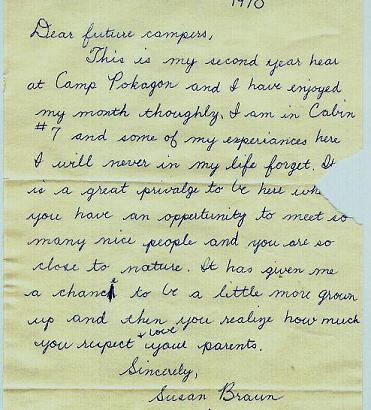 1970
Dear future campers,
This is my second year hear
at Camp Pokagon and I have enjoyed
my month thoughly. I am in Cabin
#7 and some of my experiances here
I will never in my life forget. It
is a great privalge to be here
you have an oppertunity to meet so
many nice people and you are so
close to nature. It has given me
a chance to be a little more grown
up and then you realize how much
you respect + love your parents.
Sincerely,
Susan Braun